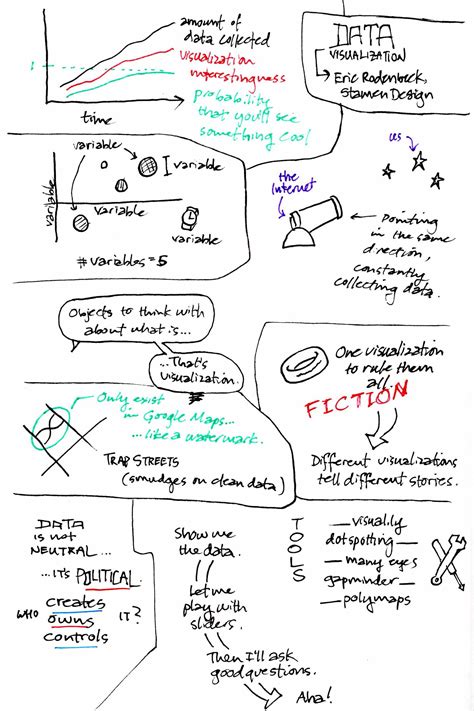 amount of
data collected
visualization
interestingness
probability
that you'll see
something cool
1
time
DATA
VISUALIZATION
Eric Rodenbeck,
Stamen Design
variable
variable
variable
variable
variable
# variables = 5
us
the
Internet
Pointing
in the same
direction,
constantly
collecting data.
Objects to think with
about what is...
...That's
visualization.
One visualization
to rule them
all
FICTION
Different visualizations
tell different stories.
Only exist
in Google Maps...
...like a watermark.
TRAP STREETS
(smudges on clean data)
DATA
is not
NEUTRAL...
...it's POLITICAL.
WHO creates
owns
controls
IT?
Show me
the data.
Let me
play with
sliders.
Then I'll ask
good questions.
Aha!
TOOLS
visual.ly
dotspotting
many eyes
gapminder
polymaps